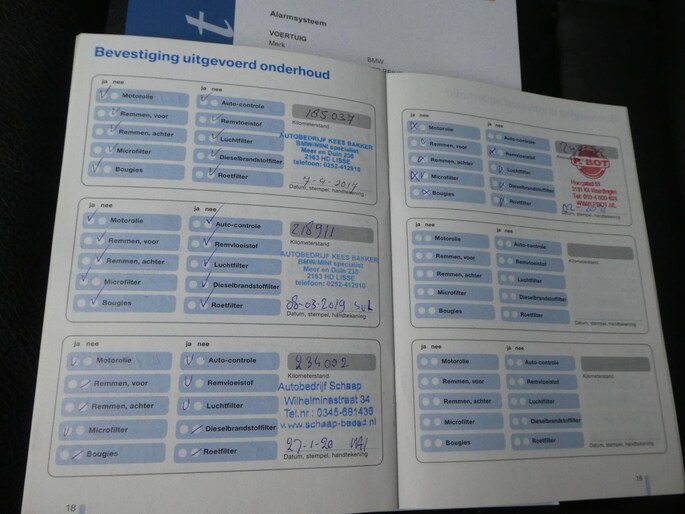 Alarmsysteem
VOERTUIG
Merk
BMW
t
Bevestiging uitgevoerd onderhoud
ja nee
Motorolie
Remmen, voor
Remmen, achter
Microfilter
Bougies
ja nee
Auto-controle
Remvloeistof
Luchtfilter
Dieselbrandstoffilter
Roetfilter
185.037
Kilometerstand
AUTOBEDRIJF KEES BAKKER
BMW/MINI specialist
Meer en Duin 238
2163 HD LISSE
telefoon: 0252-412910
7-4-2017
Datum, stempel, handtekening
ja nee
Motorolie
Remmen, voor
Remmen, achter
Microfilter
Bougies
ja nee
Auto-controle
Remvloeistof
Luchtfilter
Dieselbrandstoffilter
Roetfilter
218911
Kilometerstand
AUTOBEDRIJF KEES BAKKER
BMW/MINI specialist
Meer en Duin 238
2163 HD LISSE
telefoon: 0252-412910
08-03-2019
Datum, stempel, handtekening
ja nee
Motorolie
Remmen, voor
Remmen, achter
Microfilter
Bougies
ja nee
Auto-controle
Remvloeistof
Luchtfilter
Dieselbrandstoffilter
Roetfilter
234002
Kilometerstand
Autobedrijf Schaap
Wilhelminastraat 34
Tel.nr.: 0345-681436
www.schaap-beesd.nl
27-1-20
Datum, stempel, handtekening
18
ja nee
Motorolie
Remmen, voor
Remmen, achter
Microfilter
Bougies
ja nee
Auto-controle
Remvloeistof
Luchtfilter
Dieselbrandstoffilter
Roetfilter
Kilometerstand
Datum, stempel, handtekening
ja nee
Motorolie
Remmen, voor
Remmen, achter
Microfilter
Bougies
ja nee
Auto-controle
Remvloeistof
Luchtfilter
Dieselbrandstoffilter
Roetfilter
Kilometerstand
Datum, stempel, handtekening
ja nee
Motorolie
Remmen, voor
Remmen, achter
Microfilter
Bougies
ja nee
Auto-controle
Remvloeistof
Luchtfilter
Dieselbrandstoffilter
Roetfilter
Kilometerstand
Datum, stempel, handtekening
19